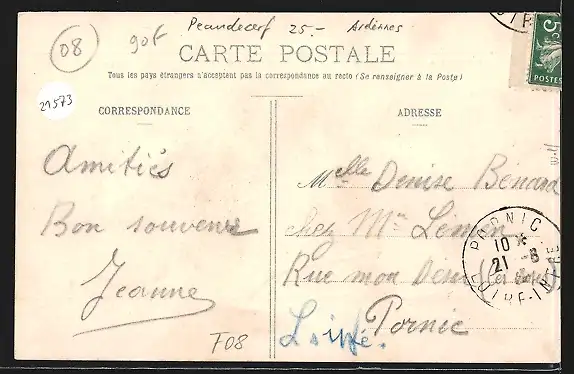 08
90F
Peaudecerf 25.- Ardennes
CARTE POSTALE
Tous les pays étrangers n'acceptent pas la correspondance au recto (Se renseigner à la Poste)
29573
CORRESPONDANCE
ADRESSE
5c
POSTES
Amitiés
Bon souvenir
Jeanne
F08
Melle Denise Benard
chez Mr
Rue mon Désir
Pornic
PORNIC
10
21 -8